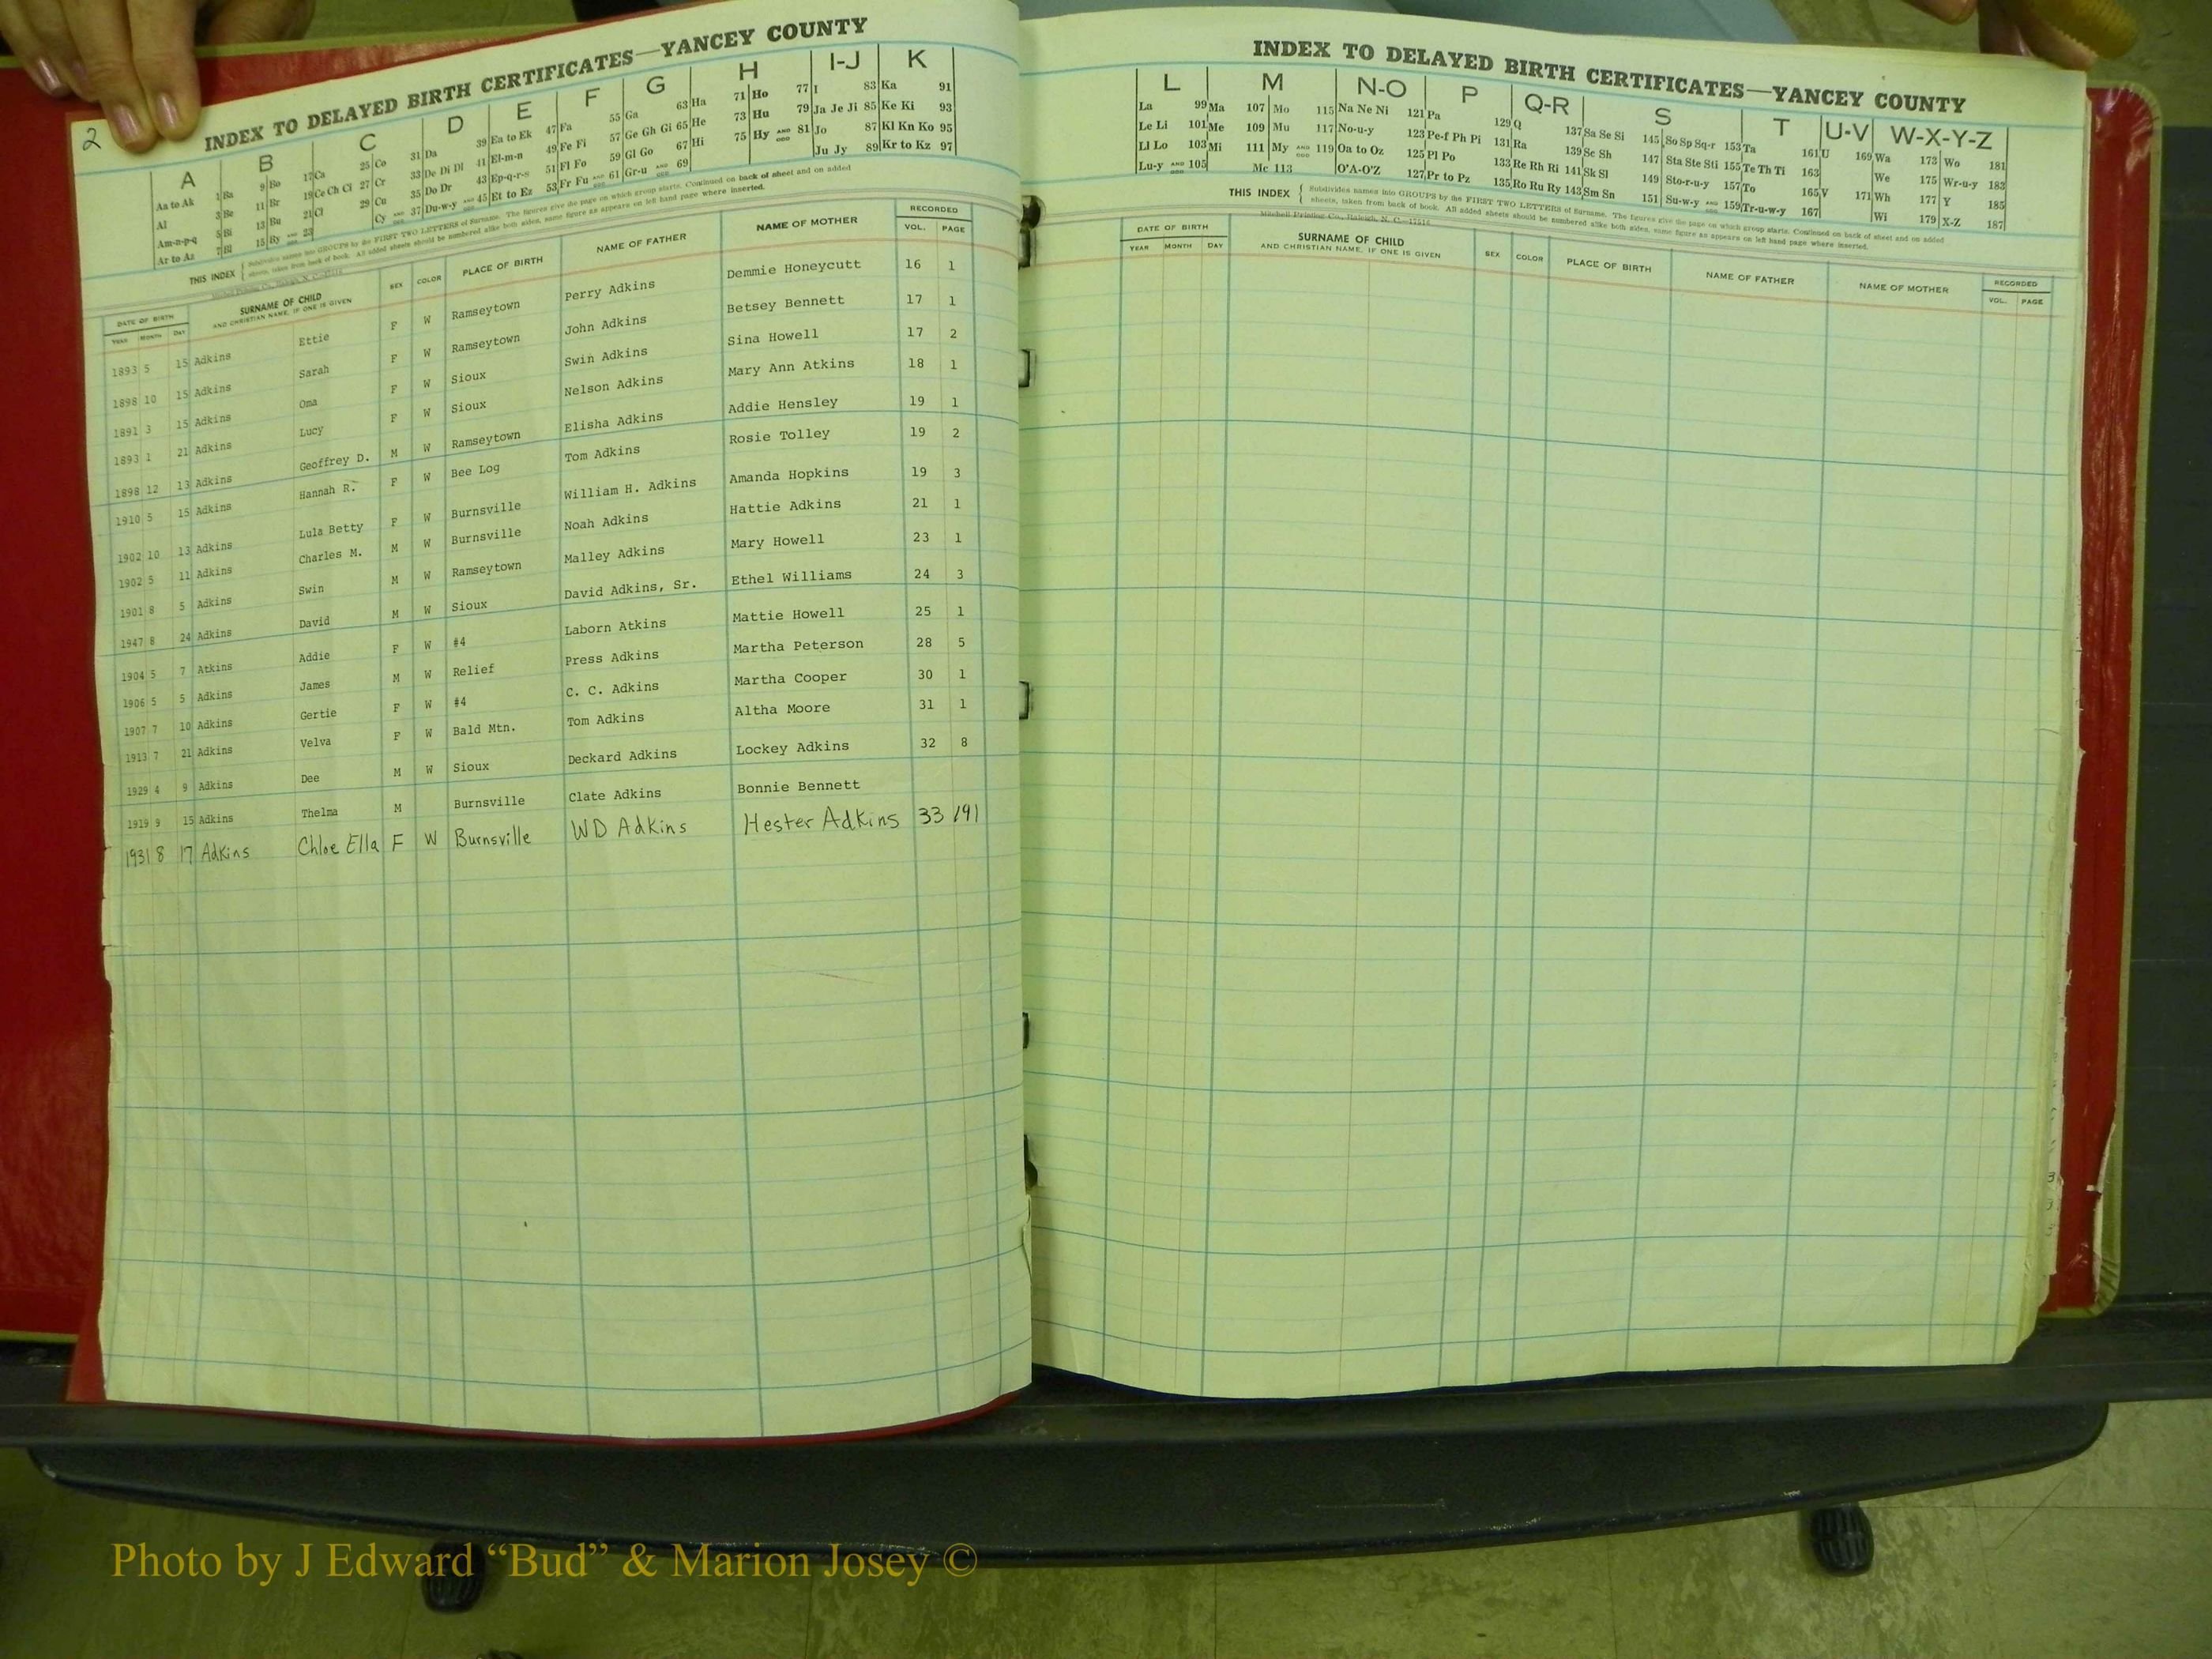 2
INDEX TO DELAYED BIRTH CERTIFICATES—YANCEY COUNTY
A B C D E F G H I-J K
Aa to Ak 1 Ba 9 Bo 17 Ca 25 Co 31 Da 39 Ea to Ek 47 Fa 55 Ga 63 Ha 71 Ho 77 I 83 Ka 91
Al 3 Be 11 Br 19 Ce Ch Ci 27 Cr 33 De Di Dl 41 El-m-n 49 Fe Fi 57 Ge Gh Gi 65 He 73 Hu 79 Ja Je Ji 85 Ke Ki 93
Am-n-p-q 5 Bi 13 Bu 21 Cl 29 Cu 35 Do Dr 43 Ep-q-r-s 51 Fl Fo 59 Gl Go 67 Hi 75 Hy AND ODD 81 Jo 87 Kl Kn Ko 95
Ar to Az 7 Bl 15 By AND ODD 23 Cy AND ODD 37 Du-w-y AND ODD 45 Et to Ez 53 Fr Fu AND ODD 61 Gr-u AND ODD 69 Ju Jy 89 Kr to Kz 97
THIS INDEX { Subdivides names into GROUPS by the FIRST TWO LETTERS of Surname. The figures give the page on which group starts. Continued on back of sheet and on added
sheets, taken from back of book. All added sheets should be numbered alike both sides, same figure as appears on left hand page where inserted.
DATE OF BIRTH SURNAME OF CHILD SEX COLOR PLACE OF BIRTH NAME OF FATHER NAME OF MOTHER RECORDED
YEAR MONTH DAY AND CHRISTIAN NAME, IF ONE IS GIVEN VOL. PAGE
1893 5 15 Adkins Ettie F W Ramseytown Perry Adkins Demmie Honeycutt 16 1
1898 10 15 Adkins Sarah F W Ramseytown John Adkins Betsey Bennett 17 1
1891 3 15 Adkins Oma F W Sioux Swin Adkins Sina Howell 17 2
1893 1 21 Adkins Lucy F W Sioux Nelson Adkins Mary Ann Atkins 18 1
1898 12 13 Adkins Geoffrey D. M W Ramseytown Elisha Adkins Addie Hensley 19 1
1910 5 15 Adkins Hannah R. F W Bee Log Tom Adkins Rosie Tolley 19 2
1902 10 13 Adkins Lula Betty F W Burnsville William H. Adkins Amanda Hopkins 19 3
1902 5 11 Adkins Charles M. M W Burnsville Noah Adkins Hattie Adkins 21 1
1901 8 5 Adkins Swin M W Ramseytown Malley Adkins Mary Howell 23 1
1947 8 24 Adkins David M W Sioux David Adkins, Sr. Ethel Williams 24 3
1904 5 7 Atkins Addie F W #4 Laborn Atkins Mattie Howell 25 1
1906 5 5 Adkins James M W Relief Press Adkins Martha Peterson 28 5
1907 7 10 Adkins Gertie F W #4 C. C. Adkins Martha Cooper 30 1
1913 7 21 Adkins Velva F W Bald Mtn. Tom Adkins Altha Moore 31 1
1929 4 9 Adkins Dee M W Sioux Deckard Adkins Lockey Adkins 32 8
1919 9 15 Adkins Thelma M Burnsville Clate Adkins Bonnie Bennett
1931 8 17 Adkins Chloe Ella F W Burnsville WD Adkins Hester Adkins 33 191
INDEX TO DELAYED BIRTH CERTIFICATES—YANCEY COUNTY
L M N-O P Q-R S T U-V W-X-Y-Z
La 99 Ma 107 Mo 115 Na Ne Ni 121 Pa 129 Q 137 Sa Se Si 145 So Sp Sq-r 153 Ta 161 U 169 Wa 173 Wo 181
Le Li 101 Me 109 Mu 117 No-u-y 123 Pe-f Ph Pi 131 Ra 139 Sc Sh 147 Sta Ste Sti 155 Te Th Ti 163 We 175 Wr-u-y 183
Ll Lo 103 Mi 111 My AND ODD 119 Oa to Oz 125 Pl Po 133 Re Rh Ri 141 Sk Sl 149 Sto-r-u-y 157 To 165 V 171 Wh 177 Y 185
Lu-y AND ODD 105 Mc 113 O'A-O'Z 127 Pr to Pz 135 Ro Ru Ry 143 Sm Sn 151 Su-w-y AND ODD 159 Tr-u-w-y 167 Wi 179 X-Z 187
THIS INDEX { Subdivides names into GROUPS by the FIRST TWO LETTERS of Surname. The figures give the page on which group starts. Continued on back of sheet and on added
sheets, taken from back of book. All added sheets should be numbered alike both sides, same figure as appears on left hand page where inserted.
Mitchell Printing Co., Raleigh, N. C.
DATE OF BIRTH SURNAME OF CHILD SEX COLOR PLACE OF BIRTH NAME OF FATHER NAME OF MOTHER RECORDED
YEAR MONTH DAY AND CHRISTIAN NAME, IF ONE IS GIVEN VOL. PAGE
Photo by J Edward “Bud” & Marion Josey ©